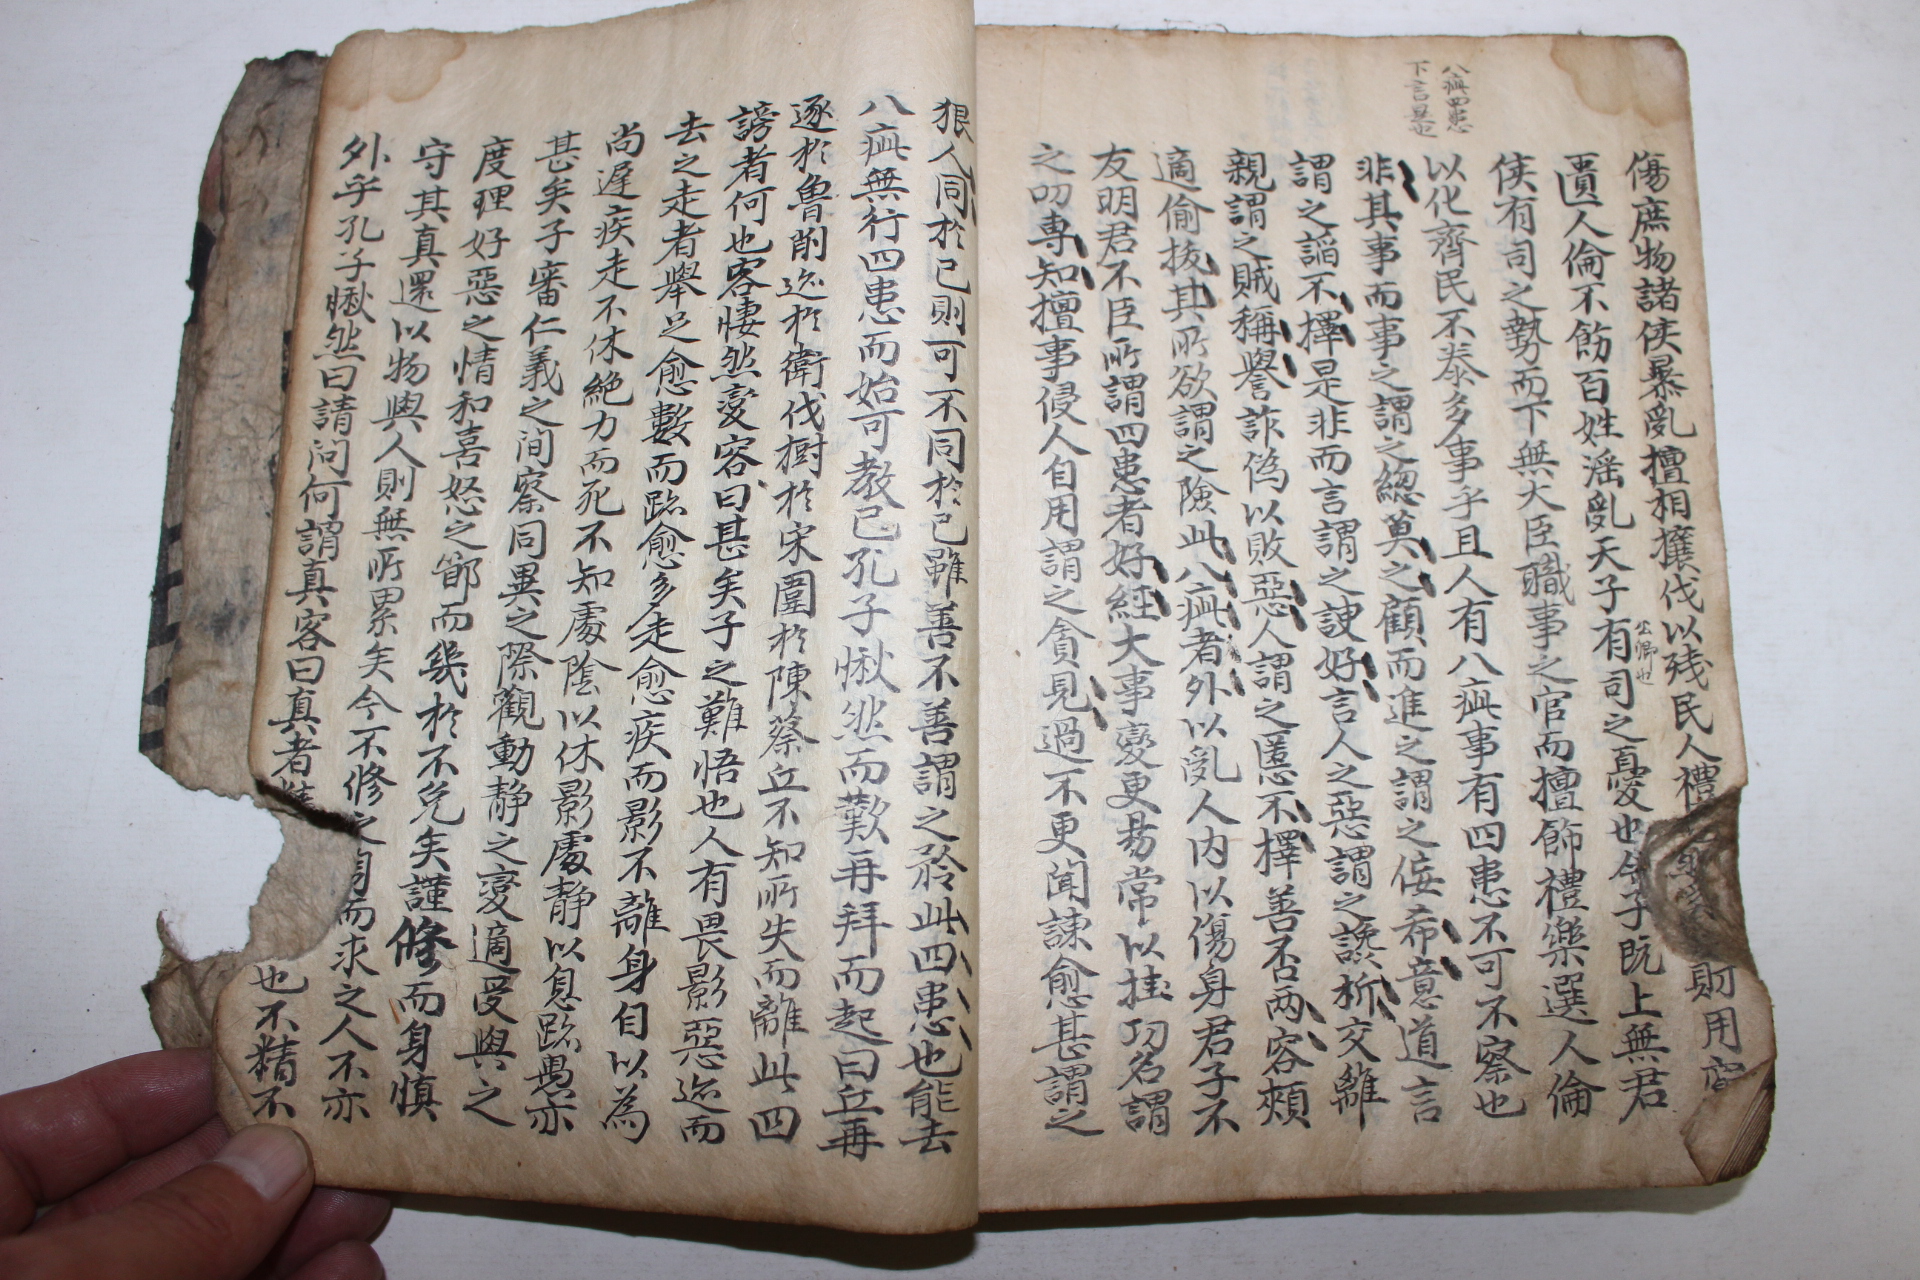 八疵四患
下言是也
傷庶物諸侯暴亂擅相攘伐以残民人禮 財用窮
匱人倫不飭百姓淫亂天子有司之憂也今子既上無君
公卿也
侯有司之勢而下無大臣職事之官而擅飾禮樂選人倫
以化齊民不泰多事乎且人有八疵事有四患不可不察也
非其事而事之謂之緫莫之顧而進之謂之佞希意道言
謂之謟不擇是非而言謂之諛好言人之惡謂之讒析交離
親謂之賊稱譽詐偽以敗惡人謂之慝不擇善否兩容頰
適偷拔其所欲謂之險此八疵者外以亂人内以傷身君子不
友明君不臣所謂四患者好經大事變更昜常以挂功名謂
之叨專知擅事侵人自用謂之貪見過不更聞諫愈甚謂之
狠人同於已則可不同於已雖善不善謂之矜此四患也能去
八疵無行四患而始可教已孔子愀然而歎再拜而起曰丘再
逐於魯削迹於衛伐樹於宋圍於陳蔡丘不知所失而離此四
謗者何也客悽然變容曰甚矣子之難悟也人有畏影惡迹而
去之走者舉足愈數而跡愈多走愈疾而影不離身自以為
尚遅疾走不休絶力而死不知處陰以休影處静以息跡愚亦
甚矣子審仁義之间察同異之際觀動静之變適受與之
度理好惡之情和喜怒之節而幾於不免矣謹修而身慎
守其真還以物與人則無所累矣今不修之身而求之人不亦
外乎孔子愀然曰請问何謂真客曰真者精 也不精不